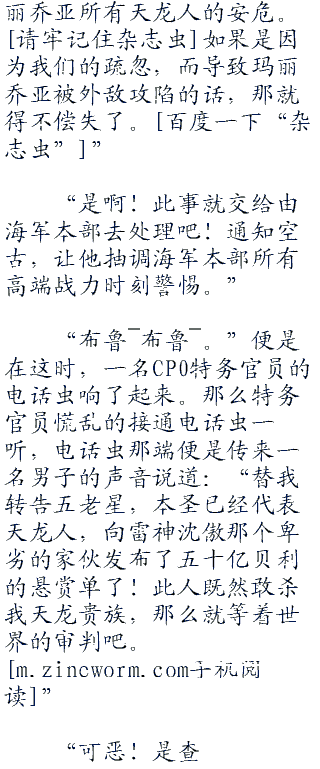 丽乔亚所有天龙人的安危。
[请牢记住杂志虫]如果是因
为我们的疏忽，而导致玛丽
乔亚被外敌攻陷的话，那就
得不偿失了。[百度一下“杂
志虫”]”
“是啊！此事就交给由
海军本部去处理吧！通知空
古，让他抽调海军本部所有
高端战力时刻警惕。”
“布鲁~布鲁~。”便是
在这时，一名CP0特务官员的
电话虫响了起来。那么特务
官员慌乱的接通电话虫一
听，电话虫那端便是传来一
名男子的声音说道：“替我
转告五老星，本圣已经代表
天龙人，向雷神沈傲那个卑
劣的家伙发布了五十亿贝利
的悬赏单了！此人既然敢杀
我天龙贵族，那么就等着世
界的审判吧。
[m.zincworm.com手机阅
读]”
“可恶！是查